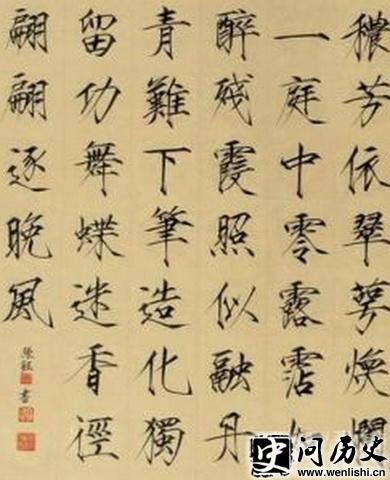 穠芳依翠萼煥爛
一庭中零露霑如
醉殘霞照似融丹
青難下筆造化獨
留功舞蝶迷香徑
翩翩逐晚風
書
史 问历史
www.wenlishi.cn